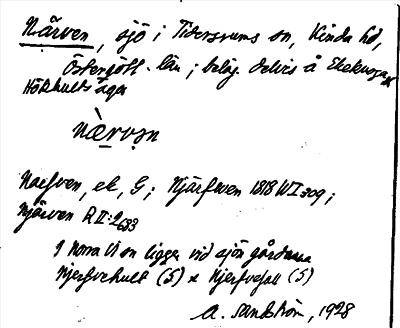 Närven, sjö i Tidersrums sn, Kinda hd,
Östergötl. län; beläg. delvis å Ekekulla
Hökhults ägor
nærvən
Naefven, ek, G; Njärfwen 1818 WI 309;
Njärven R II:2 633
I Norra Vi sn ligger vid sjön gårdarna
Njerfvehult (S) & Njerfvefall (S)
A. Sandström, 1928